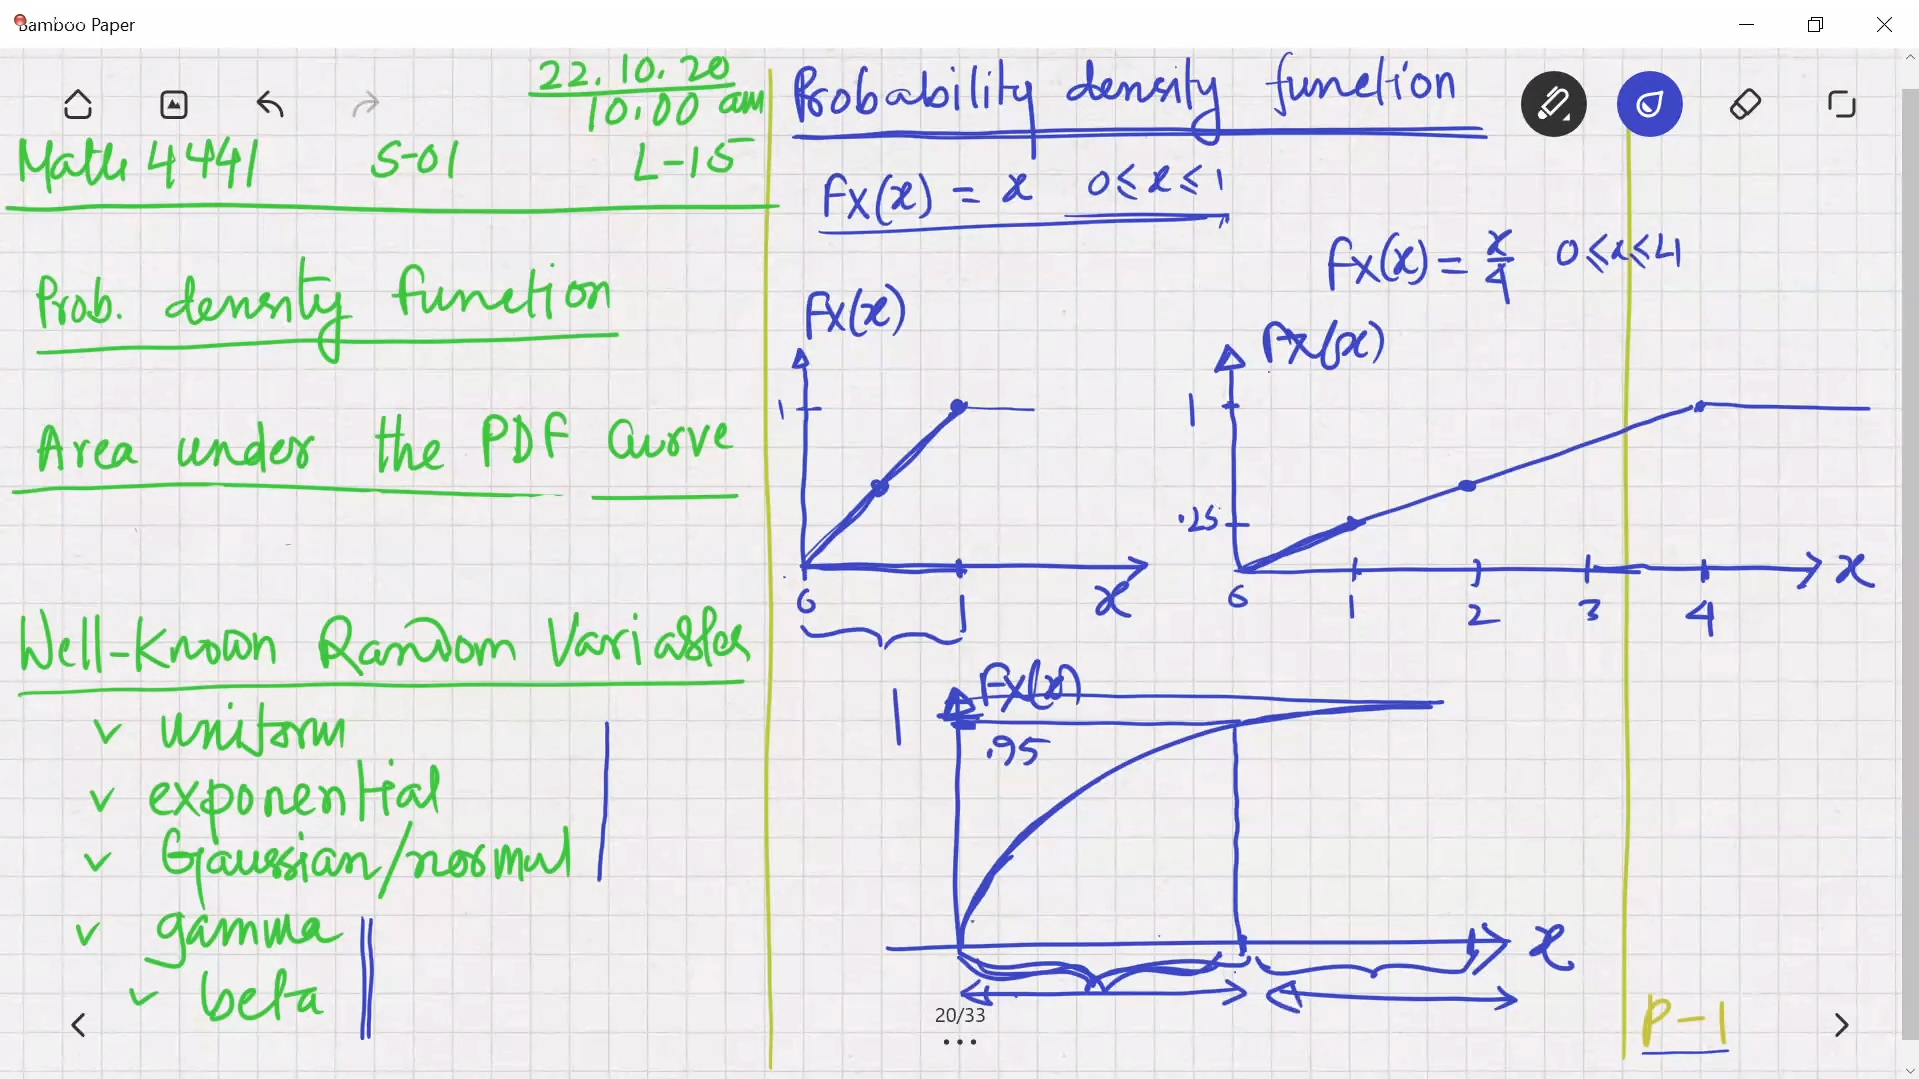 Bamboo Paper
22.10.20
10.00 am
Math 4441 S-01 L-15
Prob. density function
Area under the PDF Curve
Well-Known Random Variables
✓ uniform
✓ exponential
✓ Gaussian/normal
✓ gamma
✓ beta
Probability density function
FX(x) = x 0≤x≤1
FX(x) = x/4 0≤x≤4
FX(x)
1
0 1 x
FX(x)
1
.25
0 1 2 3 4 x
FX(x)
1
.95
x
20/33
P-1